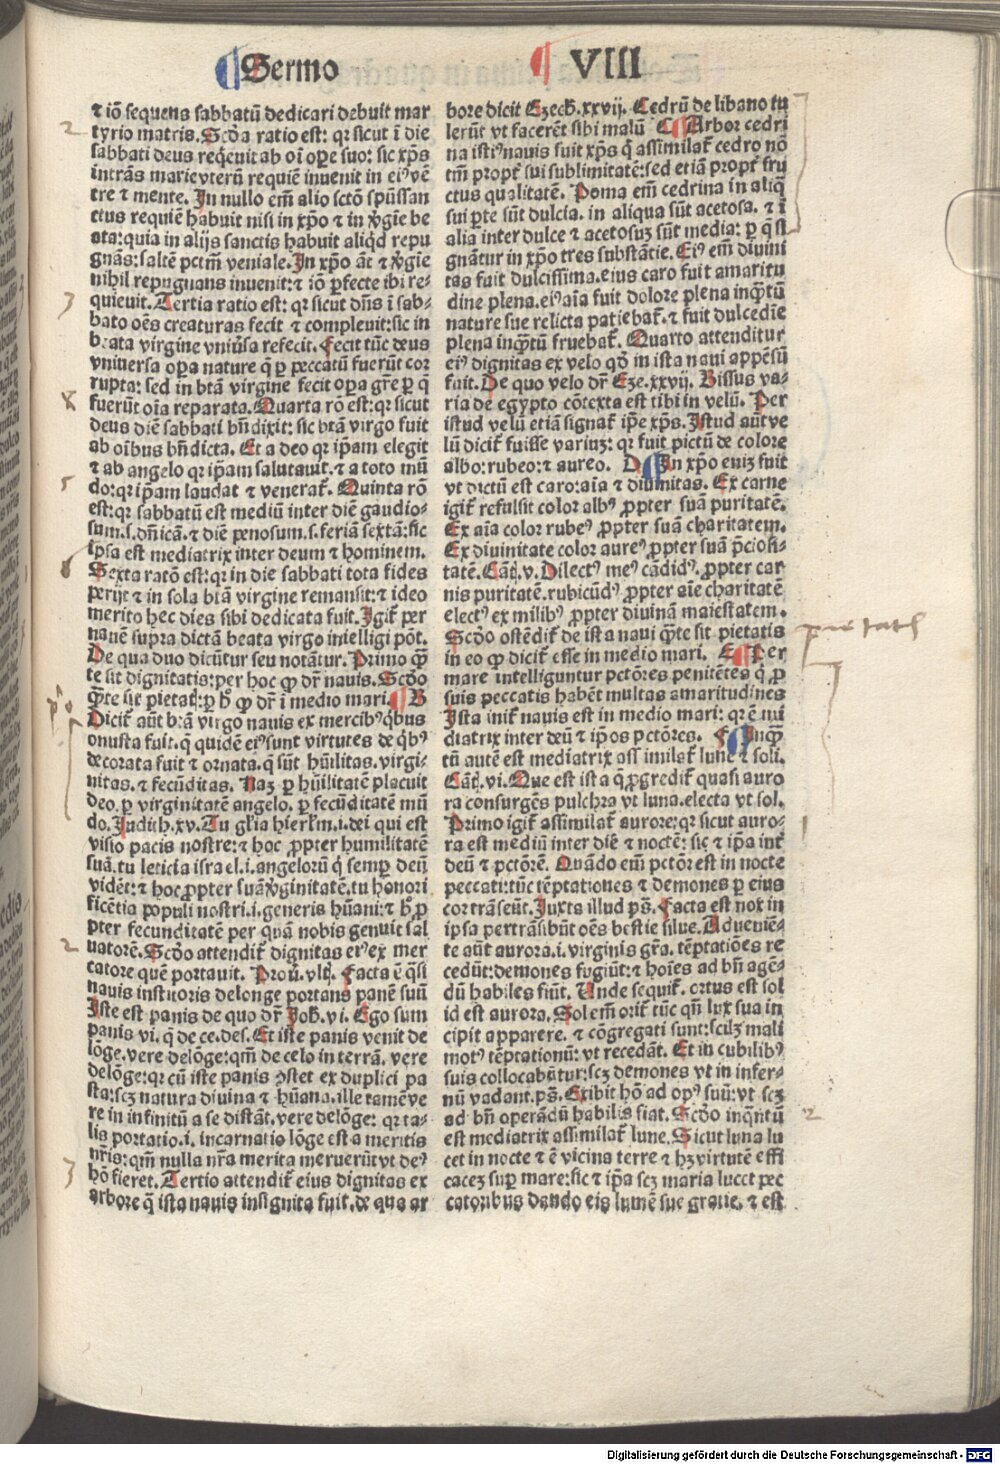 Sermo VIII
⁊ iō sequens sabbatū dedicari debuit mar
tyrio matris. Scd̄a ratio est: qr sicut ī die
sabbati deus reqēuit ab oī oꝑe suo: sic xp̄s
intrās marie vterū requiē inuenit in eiꝰ vē
tre ⁊ mente. In nullo em̄ alio sctō sp̄ussan
ctus requiē habuit nisi in xp̄o ⁊ in v̄gie be
ata: quia in alijs sanctis habuit aliqd repu
gnās: saltē pctm̄ veniale. In xp̄o āt ⁊ v̄gie
nihil repugnans inuenit: ⁊ iō ꝑfecte ibi re-
quieuit. Tertia ratio est: qr sicut dn̄s ī sab-
bato oēs creaturas fecit ⁊ compleuit: sic in
beata virgine vniūsa refecit. Fecit tūc deus
vniuersa oꝑa nature q̄ ꝑ peccatū fuerūt cor
rupta: sed in btā virgine fecit oꝑa gr̄e ꝑ q̄
fuerūt oīa reparata. Quarta rō est: qr sicut
deus diē sabbati bn̄dixit: sic btā virgo fuit
ab oībus bn̄dicta. Et a deo qr ip̄am elegit
⁊ ab angelo qr ip̄am salutauit. ⁊ a toto mū
do: qr ip̄am laudat ⁊ venerat̄. Quinta rō
est: qr sabbatū est mediū inter diē gaudio-
sum .s. dn̄icā. ⁊ diē penosum .s. feriā sextā: sic
ipsa est mediatrix inter deum ⁊ hominem.
Sexta ratō est: qr in die sabbati tota fides
perijt ⁊ in sola btā virgine remansit: ⁊ ideo
merito hec dies sibi dedicata fuit. Igit̄ per
nauē supra dictā beata virgo intelligi pōt.
De qua duo dicūtur seu notātur. Primo q̄ꝫ
te sit dignitatis: per hoc ꝙ dr̄ nauis. Scd̄o
q̄ꝫte sit pietatis: ꝑ h̄ ꝙ dr̄ ī medio mari. B
Dicit̄ aūt btā virgo nauis ex mercibꝰ q̄bus
onusta fuit. q̄ quidē eiꝰ sunt virtutes de q̄bꝰ
decorata fuit ⁊ ornata. q̄ sūt hūilitas. virgi-
nitas. ⁊ fecūditas. Naꝫ ꝑ hūilitatē placuit
deo. ꝑ virginitatē angelo. ꝑ fecūditatē mū
do. Judith .xv. Tu gl̄ia hierl̄m .i. dei qui est
visio pacis nostre: ⁊ hoc ꝓpter humilitatē
suā. tu leticia israel .i. angelorū q̄ semꝑ deū
vidēt: ⁊ hoc ꝓpter suā v̄ginitatē. tu honori
ficētia populi nostri .i. generis hūani: ⁊ h̄ ꝓ
pter fecunditatē per quā nobis genuit sal
uatorē. Scd̄o attendit̄ dignitas eiꝰ ex mer
catore quē portauit. Prou̅. vlt. Facta ē q̄si
nauis institoris de longe portans panē suū
Iste est panis de quo dr̄ Joh̄. vi. Ego sum
panis vi. q̄ de ce. des. Et iste panis venit de
lōge. vere de lōge: qm̄ de celo in terrā. vere
de lōge: qr cū iste panis ꝯstet ex duplici pa
sta: scꝫ natura diuina ⁊ hūana. ille tamē ve
re in infinitū a se distāt. vere de lōge: qr ta-
lis portatio .i. incarnatio lōge est a meritis
nr̄is: qm̄ nulla nr̄a merita meruerūt vt deꝰ
hō fieret. Tertio attendit̄ eius dignitas ex
arbore q̄ ista nauis insignita fuit. de qua ar
bore dicit Ezech. xxvij. Cedrū de libano tu
lerūt vt facerēt sibi malū C Arbor cedri
na istiꝰ nauis fuit xp̄s q̄ assimilat̄ cedro nō
tm̄ ꝓpt̄ sui sublimitatē: sed etiā ꝓpt̄ fru
ctus qualitatē. Poma em̄ cedrina in aliq̄
sui ꝑte sūt dulcia. in aliqua sūt acetosa. ⁊ ī
alia inter dulce ⁊ acetosuꝫ sūt media: ꝑ q̄ si
gnātur in xp̄o tres substātie. Eiꝰ em̄ diuini
tas fuit dulcissima. eius caro fuit amaritu
dine plena. eiꝰ aīa fuit dolore plena inq̄ꝫtū
nature sue relicta patiebat̄. ⁊ fuit dulcedīe
plena inq̄ꝫtū fruebat̄. Quarto attenditur
eiꝰ dignitas ex velo qd̄ in ista naui appēsū
fuit. De quo velo dr̄ Eze. xxvij. Bissus va-
ria de egypto cōtexta est tibi in velū. Per
istud velū etiā signat̄ ip̄e xp̄s. Istud aūt ve
lū dicit̄ fuisse variuꝫ: qr fuit pictū de colore
albo: rubeo: ⁊ aureo. D In xp̄o eniꝫ fuit
vt dictū est caro: aīa ⁊ diuinitas. Ex carne
igit̄ refulsit color albꝰ ꝓpter suā puritatē.
Ex aīa color rubeꝰ ꝓpter suā charitatem.
Ex diuinitate color aureꝰ ꝓpter suā p̄ciosi-
tatē. Cāt. v. Dilectꝰ meꝰ cādidꝰ. ꝓpter car
nis puritatē. rubicūdꝰ ꝓpter aīe charitatē
electꝰ ex milibꝰ ꝓpter diuinā maiestatem.
Scd̄o ostēdit̄ de ista naui q̄ꝫte sit pietatis
in eo ꝙ dicit̄ esse in medio mari. E Per
mare intelliguntur pctōres penitētes q̄ ꝓ
suis peccatis habēt multas amaritudines
Ista init̄ nauis est in medio mari: qr ē me
diatrix inter deū ⁊ ip̄os pctōres. F Inq̄ꝫ
tū autē est mediatrix assimilat̄ lune ⁊ soli.
Cāt. vi. Que est ista q̄ ꝓgredit̄ quasi auro
ra consurgēs pulchra vt luna. electa vt sol.
Primo igit̄ assimilat̄ aurore: qr sicut auro-
ra est mediū inter diē ⁊ noctē: sic ⁊ ip̄a int̄
deū ⁊ pctōrē. Quādo em̄ pctōr est in nocte
peccati: tūc tēptationes ⁊ demones ꝑ eius
cor trāseūt. Juxta illud ps̄. Facta est nox in
ipsa pertrāsibūt oēs bestie silue. Adueniē-
te aūt aurora .i. virginis gr̄a. tēptatiōes re
cedūt: demones fugiūt: ⁊ hoīes ad bn̄ agē-
dū habiles fiūt. Unde sequit̄. ortus est sol
id est aurora. Sol em̄ orit̄ tūc qn̄ lux sua in
cipit apparere. ⁊ cōgregati sunt: scilꝫ mali
motꝰ tēptationū: vt recedāt. Et in cubilibꝰ
suis collocabūtur: scꝫ demones vt in infer-
nū vadant. ps̄. Exibit hō ad opꝰ suū: vt scꝫ
ad bn̄ operādū habilis fiat. Scd̄o inq̄ntū
est mediatrix assimilat̄ lune. Sicut luna lu
cet in nocte ⁊ ē vicina terre ⁊ hꝫ virtutē effi
caceꝫ suꝑ mare: sic ⁊ ip̄a scꝫ maria lucet pec
catoribus dando eis lumē sue gratie. ⁊ est
2
3
5
6
2
3
pietatis
2
Digitalisierung gefördert durch die Deutsche Forschungsgemeinschaft - DFG